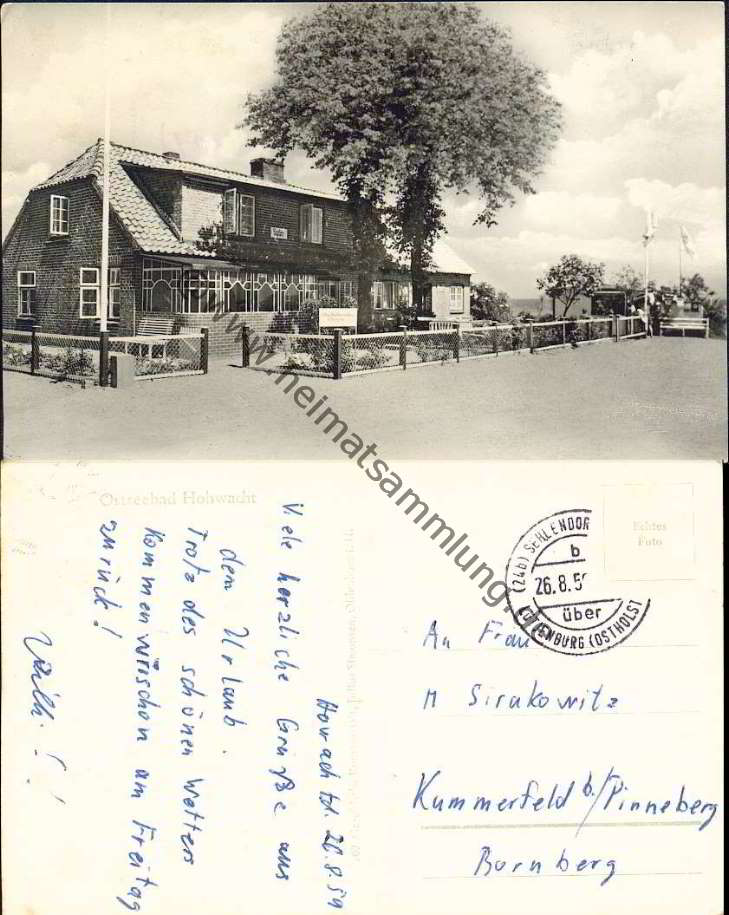 www.heimatsammlung.de
Ostseebad Hohwacht
Echtes
Foto
(24b) SEHLENDOR
b
26.8.59
über
LÜTJENBURG (OSTHOLST
Howach td. 26.8.59
Viele herzliche Grüße aus
dem Urlaub.
Trotz des schönen Wetters
Kommen wir schon am Freitag
zurück!
An Frau
M Sirakowitz
Kummerfeld b./Pinneberg
Bornberg